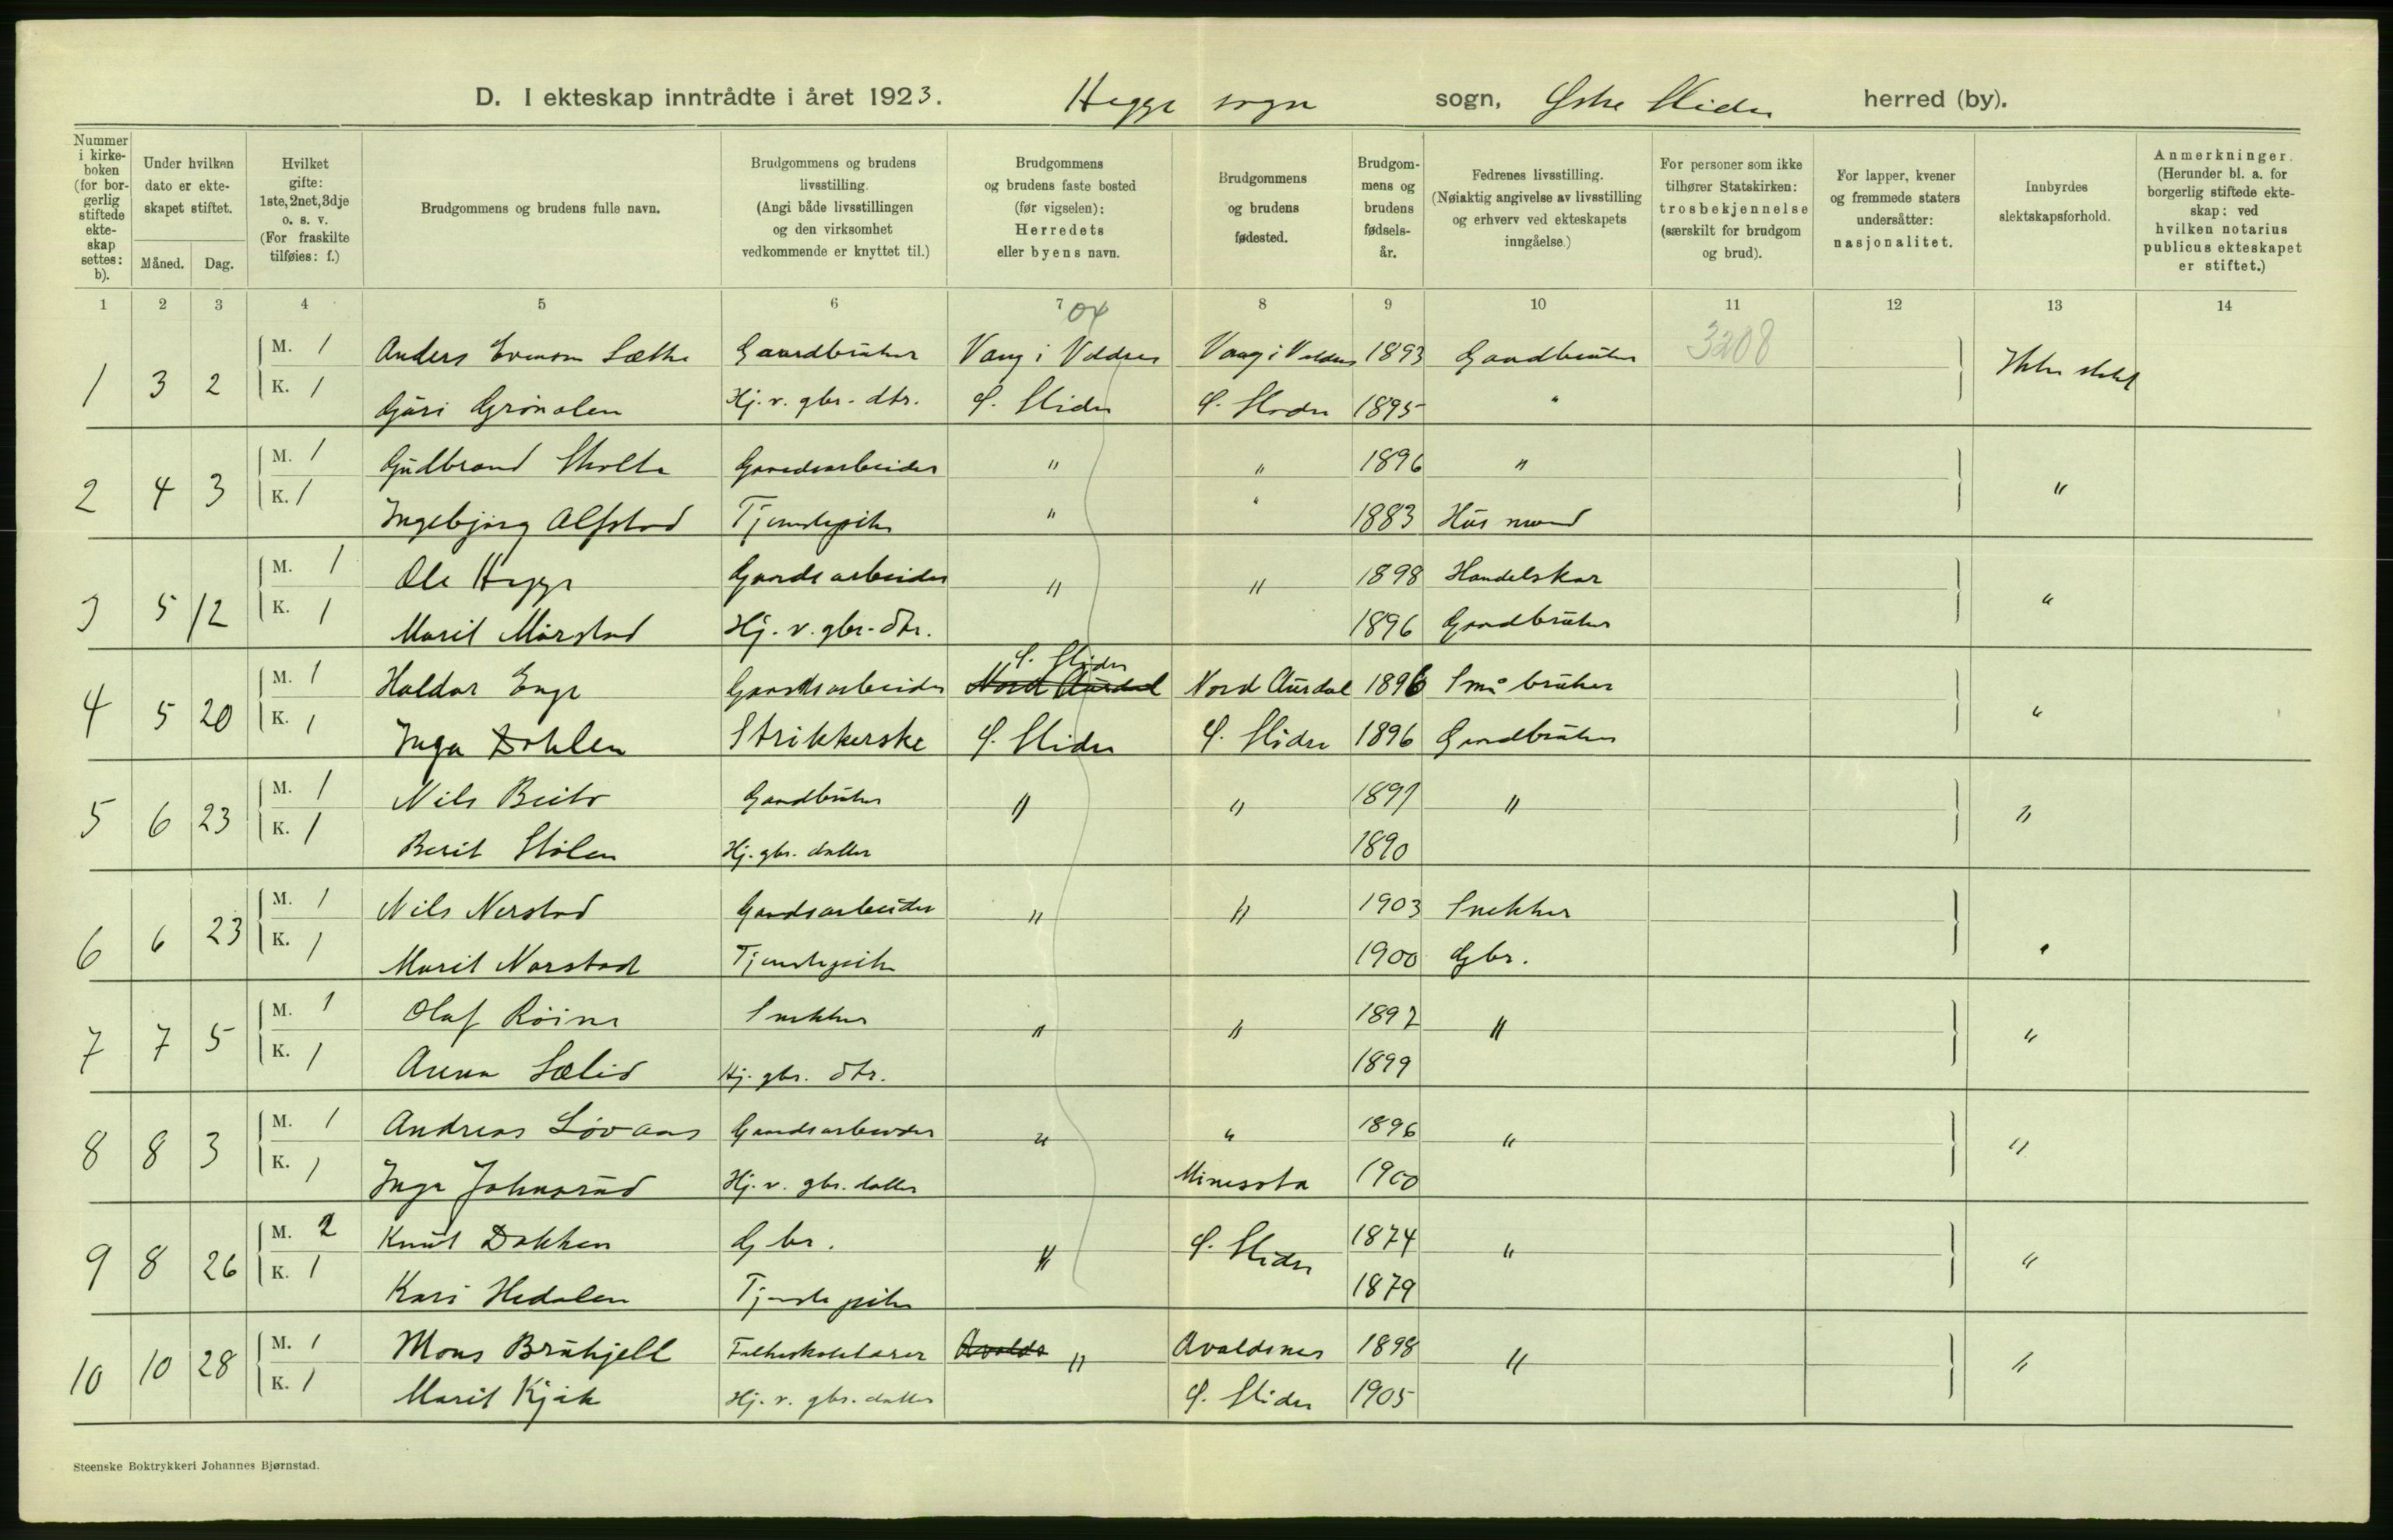 D. I ekteskap inntrådte i året 1923. Hegge sogn sogn, Østre Slidre herred (by).
Nummer i kirke-boken (for bor-gerlig stiftede ekte-skap settes: b).
Under hvilken dato er ekte-skapet stiftet.
Måned. Dag.
Hvilket gifte: 1ste, 2net, 3dje o. s. v. (For fraskilte tilføies: f.)
Brudgommens og brudens fulle navn.
Brudgommens og brudens livsstilling. (Angi både livsstillingen og den virksomhet vedkommende er knyttet til.)
Brudgommens og brudens faste bosted (før vigselen): Herredets eller byens navn.
Brudgommens og brudens fødested.
Brudgom-mens og brudens fødsels-år.
Fedrenes livsstilling. (Nøiaktig angivelse av livsstilling og erhverv ved ekteskapets inngåelse.)
For personer som ikke tilhører Statskirken: trosbekjennelse (særskilt for brudgom og brud).
For lapper, kvener og fremmede staters undersåtter: nasjonalitet.
Innbyrdes slektskapsforhold.
Anmerkninger. (Herunder bl. a. for borgerlig stiftede ekte-skap: ved hvilken notarius publicus ekteskapet er stiftet.)
1 2 3 4 5 6 7 8 9 10 11 12 13 14
04
3208
1 3 2 M. 1 Anders Evensen Sæthe Gaardbruker Vang i Valdres Vang i Valdres 1893 Gaardbruker Ikke slekt
K. 1 Guri Grönolen Hj. v. gbr. dtr. Ø. Slidre Ø. Slidre 1895 "
2 4 3 M. 1 Gudbrand Skolte Gaardsarbeider " " 1896 " "
K. 1 Ingebjørg Alfstad Tjenestepike " " 1883 Husmand
3 5 12 M. 1 Ole Hegge Gaardsarbeider " " 1898 Handelskar "
K. 1 Marit Mørstad Hj. v. gbr. dtr. 1896 Gaardbruker
Ø. Slidre
4 5 20 M. 1 Haldor Enge Gaardsarbeider Nord Aurdal Nord Aurdal 1896 Småbruker "
K. 1 Inga Dahlen Strikkerske Ø. Slidre Ø. Slidre 1896 Gardbruker
5 6 23 M. 1 Nils Beito Gaardbruker " " 1891 " "
K. 1 Berit Stølen Hj. gbr. datter 1890
6 6 23 M. 1 Nils Nerstad Gaardsarbeider " " 1903 Snekker "
K. 1 Marit Narstad Tjenestepike 1900 Gbr.
7 7 5 M. 1 Olaf Röine Snekker " " 1892 " "
K. 1 Anna Sælid Hj. gbr. dtr. 1899
8 8 3 M. 1 Andreas Løvaas Gaardsarbeider " " 1896 " "
K. 1 Inga Johnsrud Hj. v. gbr. datter Minesota 1900
9 8 26 M. 2 Knut Dokken Gbr. " Ø. Slidre 1874 " "
K. 1 Kari Hedalen Tjenestepike 1879
10 10 28 M. 1 Mons Brukjell Folkeskolelærer Avalds " Avaldsnes 1898 " "
K. 1 Marit Kjøk Hj. v. gbr. datter Ø. Slidre 1905
Steenske Boktrykkeri Johannes Bjørnstad.